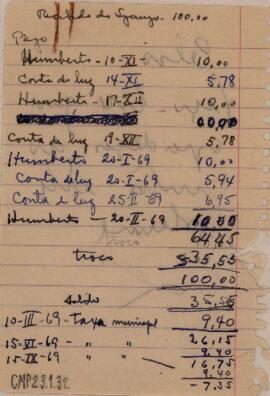 Recebido do Gyanzo. 100,00
Pago
Humberto - 10-XI 10,00
Conta de luz 14-XI 5,78
Humberto - 17-XII 10,00
Conta de luz 19-XII 5,78
Humberto 20-I-69 10,00
Conta de luz 20-I-69 5,94
Conta de luz 25 II 69 6,95
Humberto - 20-II-69 10,00
64,45
troco 35,55
100,00
saldo 35,55
10-III-69 - taxa municipal 9,40
26,15
15-VI-69 - " " 9,40
16,75
15-IX-69 " " 9,40
- 7,35
CMP23.1.32